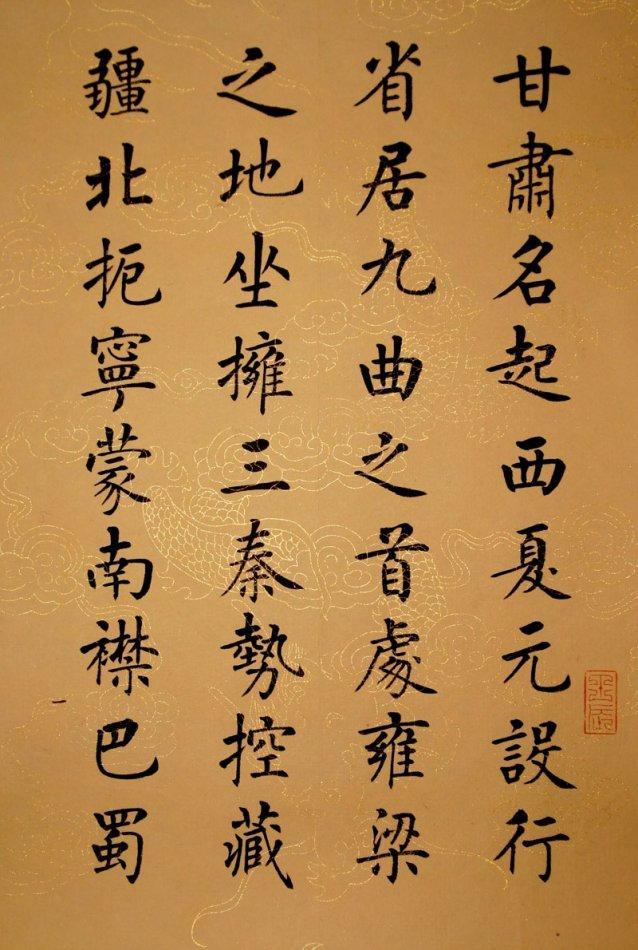 甘肅名起西夏元設行
省居九曲之首處雍梁
之地坐擁三秦勢控藏
疆北扼寧蒙南襟巴蜀